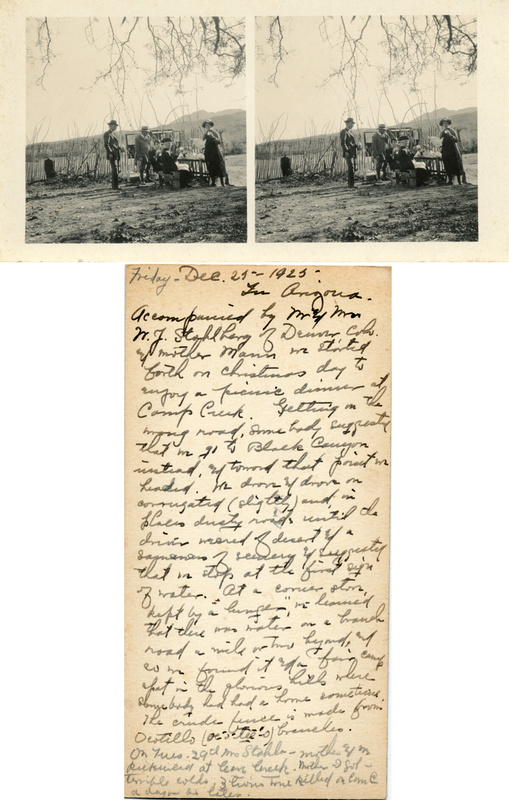 Friday - Dec. 25 - 1925 -
In Arizona.
Accompanied by Mr & Mrs
W. J. Stahlberg of Denver Colo.
& mother Mann we started
forth on christmas day to
enjoy a picnic dinner at
Camp Creek. Getting on the
wrong road, somebody suggested
that we go to Black Canyon
instead, & toward that point we
headed. We drove & drove on
corrugated (slightly) and in
places dusty roads until the
driver wearied of desert & a
sameness of scenery & suggested
that we stop at the first sign
of water. At a corner store,
kept by a "lunger", we learned
that there was water on a branch
road a mile or two beyond, &
so we found it & a fair camp
spot in the glorious hills where
somebody had had a home sometime.
The crude fence is made from
Ocotillo branches.
On Tues. 29th Mrs Stahl - mother & M
picnicked at Cave Creek. Mother &
terrible colds. killed on
a day or later.